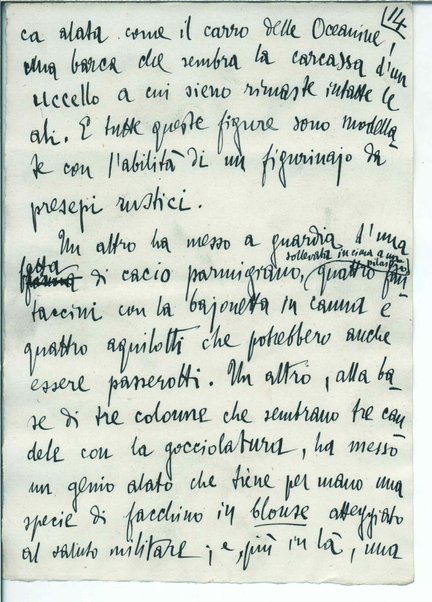 14
ca alata come il carro delle Oceanine!
Una barca che sembra la carcassa d'un
uccello a cui sieno rimaste intatte le
ali. E tutte queste figure sono modella-
te con l'abilità di un figurinajo da
presepi rustici.
Un altro ha messo a guardia d'una
sollevata in cima a un pilastro,
fetta
di cacio parmigiano, quattro fan-
taccini con la bajonetta in canna e
quattro aquilotti che potrebbero anche
essere passerotti. Un altro, alla ba-
se di tre colonne che sembrano tre can
dele con la gocciolatura, ha messo
un genio alato che tiene per mano una
specie di facchino in blouse atteggiato
al saluto militare; e, più in là, una